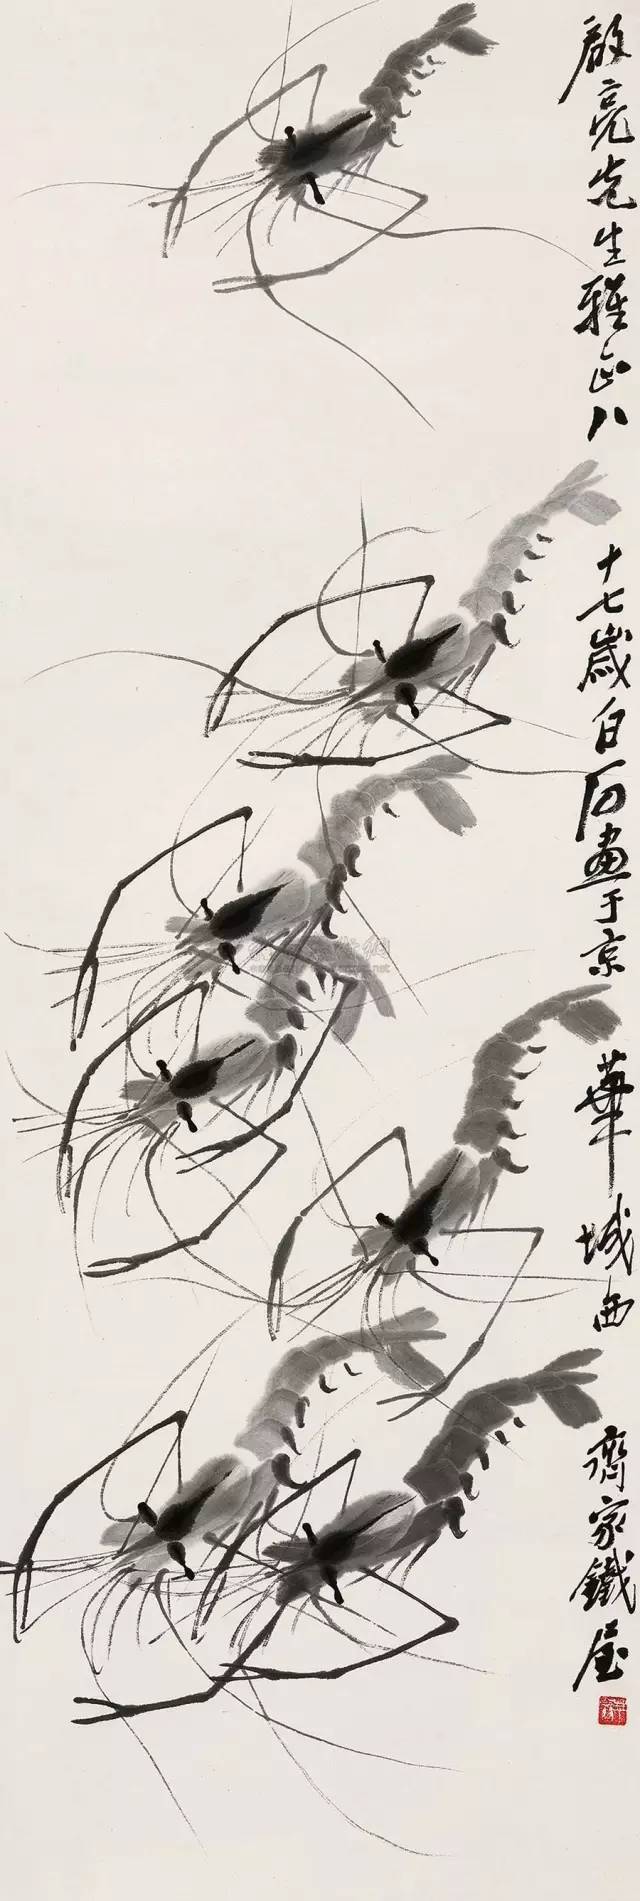 啟亮先生雅正八十七歲白石畫于京華城西齊家鐵屋